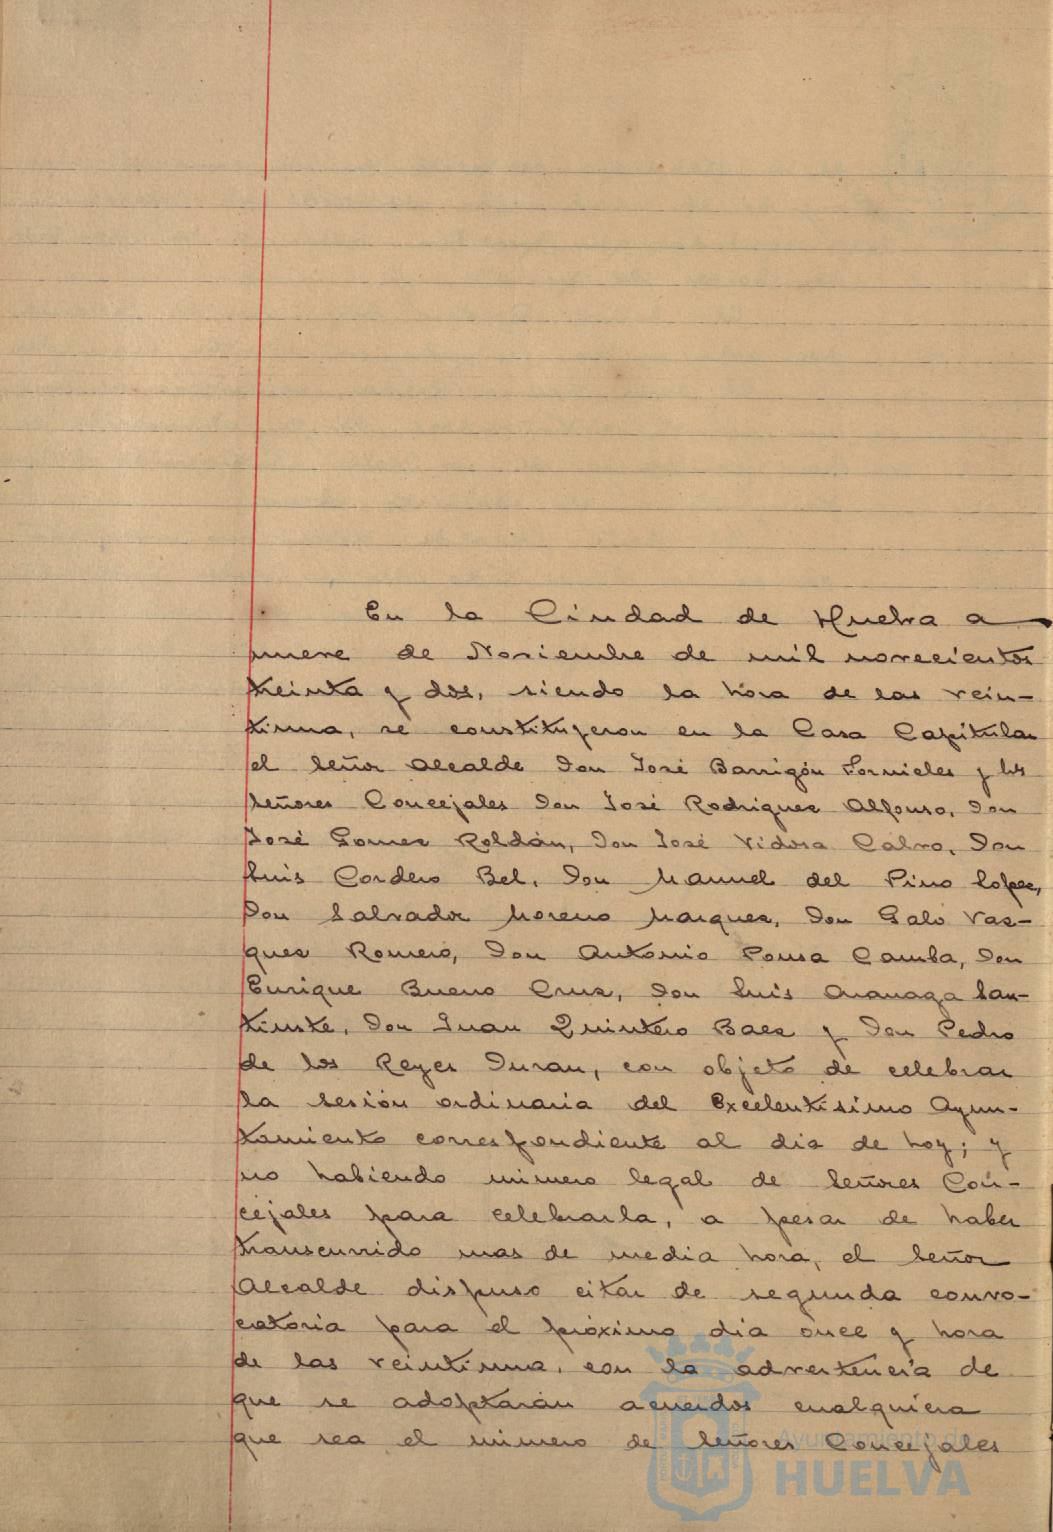 En la Ciudad de Huelva a
nueve de Noviembre de mil novecientos
treinta y dos, siendo la hora de las vein-
tiuna, se constituyeron en la Casa Capitular
el Señor Alcalde Don José Barrigón Fornieles y los
Señores Concejales Don José Rodriguez Alfonso, Don
José Gomez Roldán, Don José Vidosa Calvo, Don
Luis Cordero Bel, Don Manuel del Pino Lopez,
Don Salvador Moreno Marquez, Don Galo Vaz-
quez Romero, Don Antonio Pousa Camba, Don
Enrique Bueno Cruz, Don Luis Aranaga San-
tiuste, Don Juan Quintero Baez y Don Pedro
de los Reyes Duran, con objeto de celebrar
la sesión ordinaria del Excelentisimo Ayun-
tamiento correspondiente al dia de hoy; y
no habiendo número legal de Señores Con-
cejales para celebrarla, a pesar de haber
transcurrido mas de media hora, el Señor
Alcalde dispuso citar de segunda convo-
catoria para el próximo dia once y hora
de las veintiuna, con la advertencia de
que se adoptarán acuerdos cualquiera
que sea el número de Señores Concejales
Ayuntamiento de
HUELVA